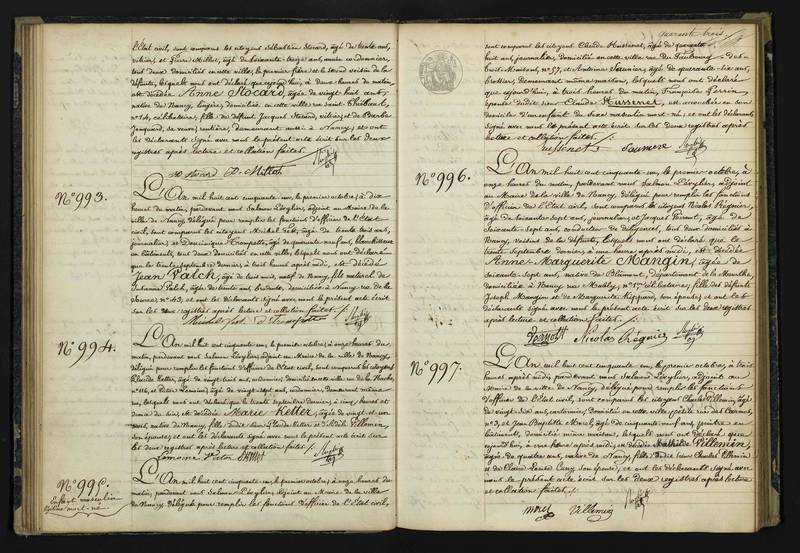 l'État civil, sont comparus les citoyens Sébastien Stocard, âgé de trente ans,
vitrier, et Pierre Millot, âgé de soixante-treize ans, ancien cordonnier,
tous deux domiciliés en cette ville, le premier frère et le second voisin de la
défunte, lesquels nous ont déclaré que cejourd'hui, à deux heures du matin,
est décédée Anne Stocard, âgée de vingt huit ans,
native de Nancy, lingère, domiciliée en cette ville rue Saint-Thiébaut,
n° 14, célibataire, fille de défunt Jacques Stocard, vitrier, et de Barbe
Jacquard, sa veuve, rentière, demeurant aussi à Nancy; et ont
les déclarants signé avec nous le présent acte écrit sur les deux
registres après lecture et collation faites.
Stocard P. Millot
N° 993.
L'An mil huit cent cinquante-un, le premier octobre, à dix
heures du matin, pardevant nous Salmon Lévylier, adjoint au Maire de la
ville de Nancy, délégué pour remplir les fonctions d'officier de l'État
civil, sont comparus les citoyens Michel âgé de trente trois ans,
journalier, et Dominique Trompette, âgé de quarante-neuf ans, blanchisseur
en bâtiments, tous deux domiciliés en cette ville, lesquels nous ont déclaré
que le trente septembre dernier, à trois heures après midi, est décédé
Jean Valch, âgé de trois mois, natif de Nancy, fils naturel de
Catherine Valch, âgée de trente ans, brodeuse, domiciliée à Nancy rue de la
n° 43; et ont les déclarants signé avec nous le présent acte écrit
sur les deux registres après lecture et collation faites.
Michel D Trompette
N° 994.
L'An mil huit cent cinquante-un, le premier octobre, à onze heures du
matin, pardevant nous Salmon Lévylier, adjoint au Maire de la ville de Nancy,
délégué pour remplir les fonctions d'officier de l'État civil, sont comparus les citoyens
Claude Keller, âgé de vingt huit ans, cordonnier, domicilié en cette ville rue
n° 116, et Victor Lemoine, âgé de vingt sept ans, cordonnier, demeurant même
rue, lesquels nous ont déclaré que le trente septembre dernier, à cinq heures et
demie du soir, est décédée Marie Keller, âgée de vingt et un
mois, native de Nancy, fille dudit sieur Claude Keller, et d' Villemin,
son épouse; et ont les déclarants signé avec nous le présent acte écrit sur
les deux registres après lecture et collation faites.
Lemoine Victor Keller
N° 995.
Enfant masculin
légitime mort-né.
L'An mil huit cent cinquante-un, le premier octobre, à onze heures du
matin, pardevant nous Salmon Lévylier, adjoint au Maire de la ville
de Nancy, délégué pour remplir les fonctions d'officier de l'État civil,
quarante trois
sont comparus les citoyens Claude Hussenet, âgé de quarante
huit ans, journalier, domicilié en cette ville rue du Faubourg-des-
trois-Maisons, n° 57, et Antoine Saunier, âgé de quarante six ans,
brossier, demeurant même maison, lesquels nous ont déclaré
que cejourd'hui, à trois heures du matin, Françoise Perrin
épouse dudit sieur Claude Hussenet, est accouchée en son
domicile d'un enfant du sexe masculin mort-né; et ont les déclarants
signé avec nous le présent acte écrit sur les deux registres après
lecture et collation faites.
hussenet Saunière
N° 996.
L'An mil huit cent cinquante-un, le premier octobre, à
onze heures du matin, pardevant nous Salmon Lévylier, adjoint
au Maire de la ville de Nancy, délégué pour remplir les fonctions
d'officier de l'État civil, sont comparus les citoyens Nicolas Régnier,
âgé de soixante-sept ans, journalier, et Jacques Pernot, âgé de
soixante-sept ans, conducteur de diligences, tous deux domiciliés à
Nancy, voisins de la défunte, lesquels nous ont déclaré que le
trente septembre dernier à une heure après midi, est décédée
Anne-Marguerite Mangin, âgée de
soixante-sept ans, native de Blâmont, département de la Meurthe,
domiciliée à Nancy rue Mably, n° 1er, célibataire, fille des défunts
Joseph Mangin et de Marguerite Rippard, son épouse; et ont les
déclarants signé avec nous le présent acte écrit sur les deux registres
après lecture et collation faites.
Pernot Nicolas Régnier
N° 997.
L'An mil huit cent cinquante-un, le premier octobre, à trois
heures après midi, pardevant nous Salmon Lévylier, adjoint au
Maire de la ville de Nancy, délégué pour remplir les fonctions
d'officier de l'État civil, sont comparus les citoyens Charles Villemin, âgé
de vingt-six ans, cartonnier, domicilié en cette ville, petite rue des Carmes,
n° 3, et Jean Baptiste Morel, âgé de cinquante-neuf ans, peintre en
bâtiments, domicilié même maison, lesquels nous ont déclaré que
cejourd'hui, à une heure après midi, est décédée Mathilde Villemin,
âgée de quatre ans, native de Nancy, fille dudit sieur Charles Villemin
et de Claire-Louise Cuny son épouse; et ont les déclarants signé avec
nous le présent acte écrit sur les deux registres après lecture
et collation faites.
morel Villemin